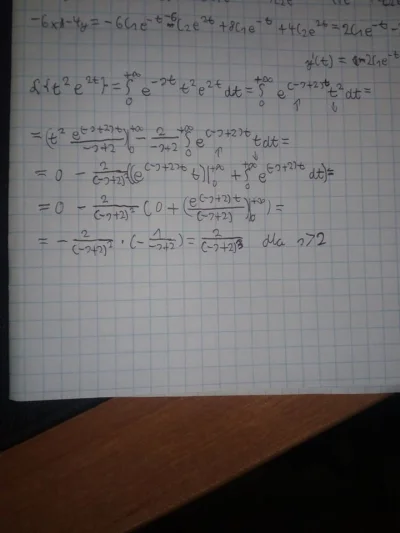 -6x1-4y = -6C₁e^{-t} - 6C₂e^{2t} + 8C₁e^{-t} + 4C₂e^{2t} = 2C₁e^{-t} -
y'(t) = 2C₁e^{-t}
ℒ{t²e^{2t}} = ∫₀^{+∞} e^{-st} t² e^{2t} dt = ∫₀^{+∞} e^{(-s+2)t} t² dt =
= (t² e^{(-s+2)t}/(-s+2))|₀^{+∞} - 2/(-s+2) ∫₀^{+∞} e^{(-s+2)t} t dt =
= 0 - 2/(-s+2)² ((e^{(-s+2)t} t)|₀^{+∞} + ∫₀^{+∞} e^{(-s+2)t} dt) =
= 0 - 2/(-s+2)² (0 + (e^{(-s+2)t}/(-s+2))|₀^{+∞}) =
= - 2/(-s+2)² · (- 1/(-s+2)) = 2/(-s+2)³ dla s>2